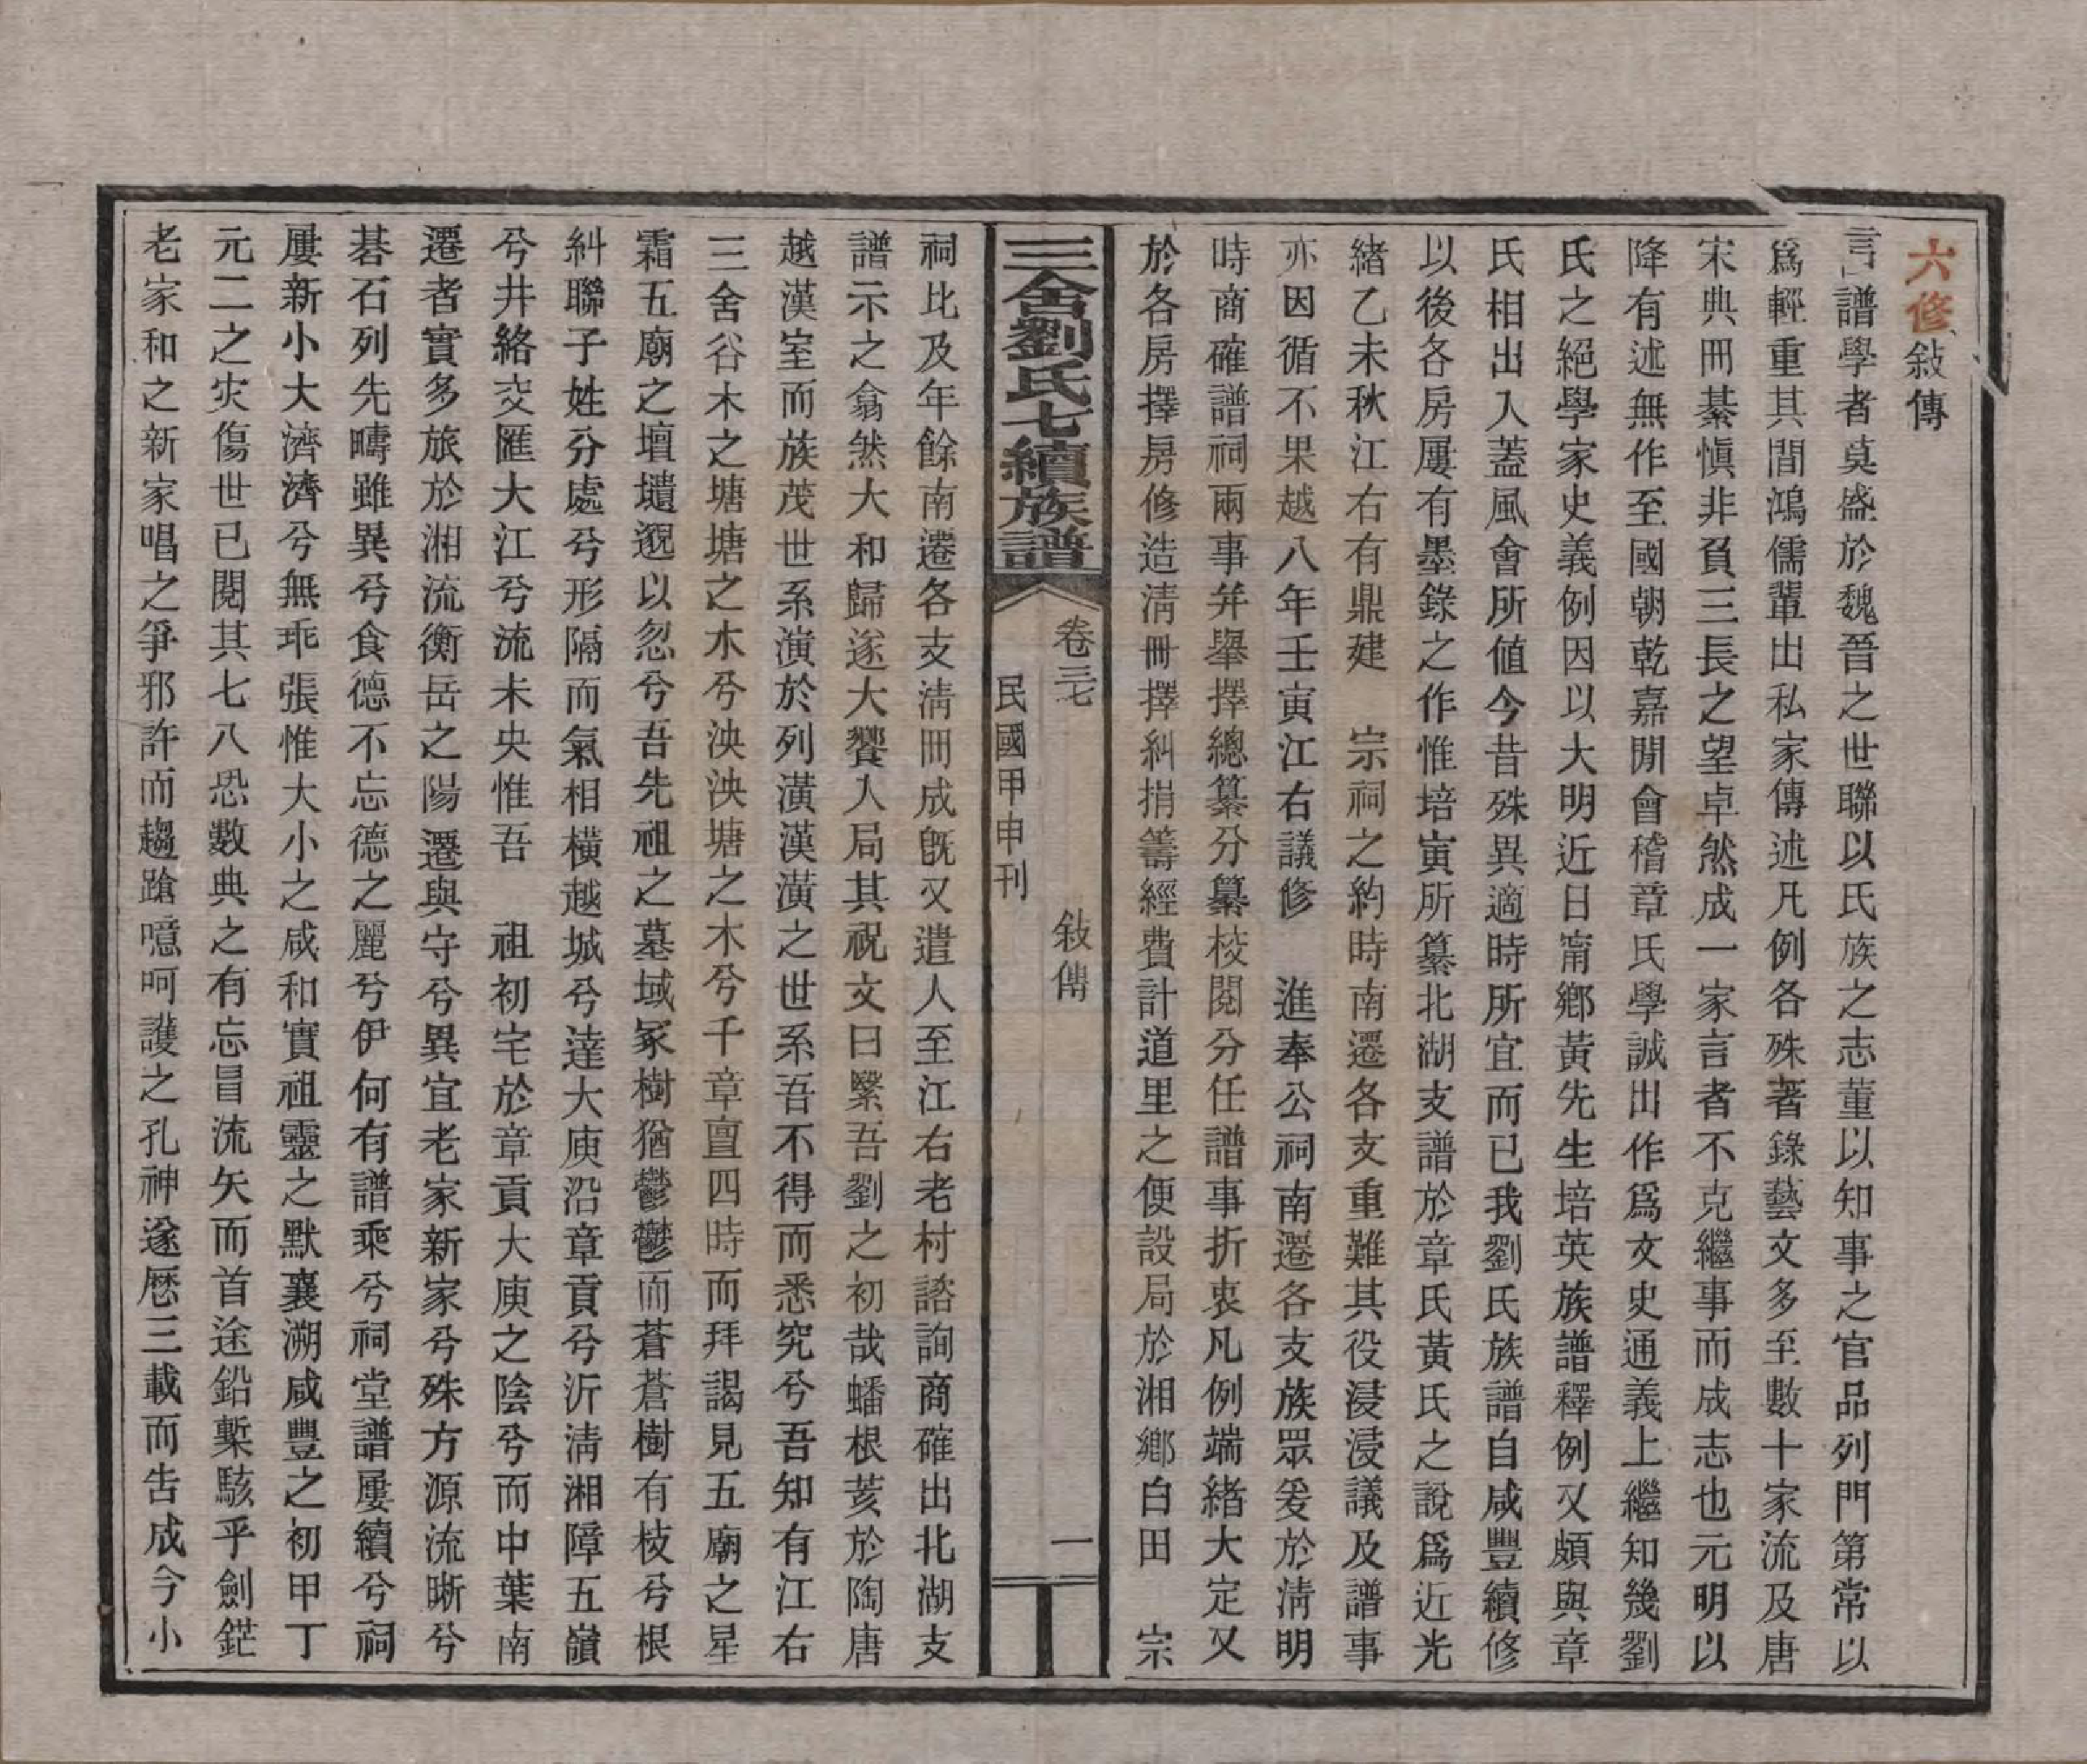 六修敍傳
言譜學者莫盛於魏晉之世聯以氏族之志董以知事之官品列門第常以
爲輕重其間鴻儒輩出私家傳述凡例各殊著錄藝文多至數十家流及唐
宋典冊綦愼非負三長之望卓然成一家言者不克繼事而成志也元明以
降有述無作至國朝乾嘉閒會稽章氏學誠出作爲文史通義上繼知幾劉
氏之絕學家史義例因以大明近日甯鄉黃先生培英族譜釋例又頗與章
氏相出入蓋風會所値今昔殊異適時所宜而已我劉氏族譜自咸豐續修
以後各房屢有墨錄之作惟培寅所纂北湖支譜於章氏黃氏之說爲近光
緖乙未秋江右有鼎建　宗祠之約時南遷各支重難其役浸浸議及譜事
亦因循不果越八年壬寅江右議修　進奉公祠南遷各支族眾爰於淸明
時商確譜祠兩事并舉擇總纂分纂校閱分任譜事折衷凡例端緖大定又
於各房擇房修造淸冊擇糾捐籌經費計道里之便設局於湘鄉白田　宗
三舍劉氏七續族譜
卷三七　敍傳　一
民國甲申刊
祠比及年餘南遷各支淸冊成旣又遣人至江右老村諮詢商確出北湖支
譜示之翕然大和歸遂大饗入局其祝文曰繄吾劉之初哉蟠根荄於陶唐
越漢室而族茂世系演於列潢漢潢之世系吾不得而悉究兮吾知有江右
三舍谷木之塘塘之木兮泱泱塘之木兮千章亶四時而拜謁見五廟之星
霜五廟之壇壝邈以忽兮吾先祖之墓域冢樹猶鬱鬱而蒼蒼樹有枝兮根
糾聯子姓分處兮形隔而氣相橫越城兮達大庾沿章貢兮沂淸湘障五嶺
兮井絡交匯大江兮流未央惟吾　祖初宅於章貢大庾之陰兮而中葉南
遷者實多旅於湘流衡岳之陽遷與守兮異宜老家新家兮殊方源流晣兮
碁石列先疇雖異兮食德不忘德之麗兮伊何有譜乘兮祠堂譜屢續兮祠
屢新小大濟濟兮無乖張惟大小之咸和實祖靈之默襄溯咸豐之初甲丁
元二之灾傷世已閱其七八恐數典之有忘冒流矢而首途鉛槧駭乎劍鋩
老家和之新家唱之爭邪許而趨蹌噫呵護之孔神遂厯三載而吿成今小